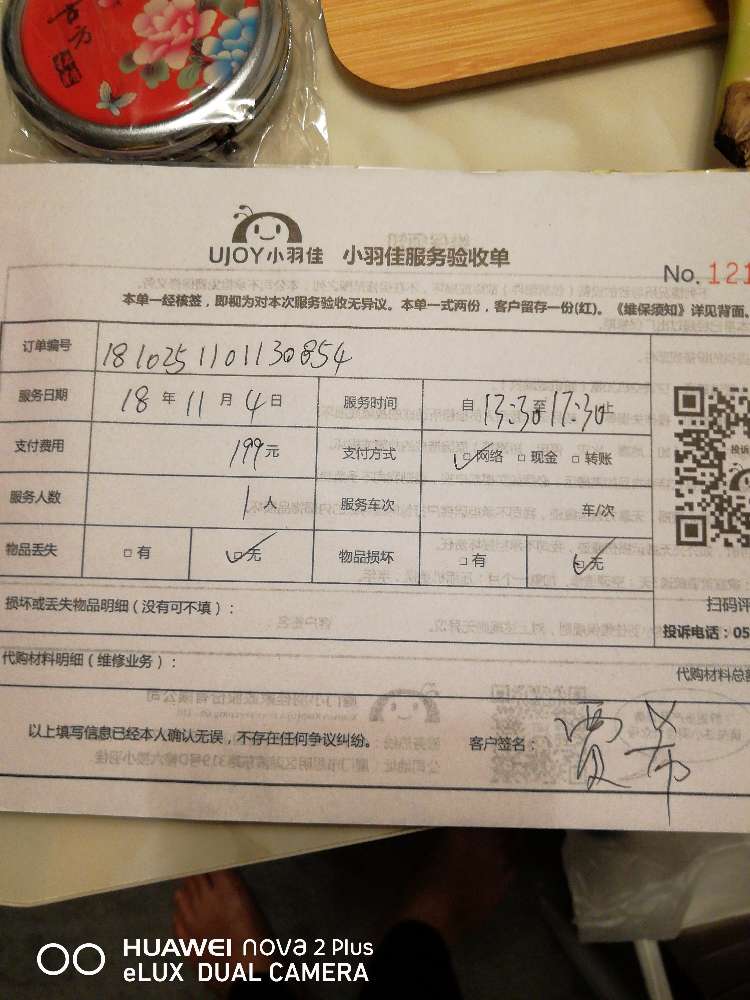 古方
UJOY小羽佳 小羽佳服务验收单
No. 121
本单一经核签，即视为对本次服务验收无异议。本单一式两份，客户留存一份(红)。《维保须知》详见背面。
订单编号 1810251101130854
服务日期 18 年 11 月 4 日 服务时间 自 13:30 至 17:30 止
支付费用 199 元 支付方式 网络 现金 转账
服务人数 1 人 服务车次 车/次
物品丢失 有 无 物品损坏 有 无
损坏或丢失物品明细（没有可不填）：
扫码评
投诉电话：05
代购材料明细（维修业务）：
代购材料总额
以上填写信息已经本人确认无误，不存在任何争议纠纷。 客户签名：贾希
HUAWEI nova 2 Plus
eLUX DUAL CAMERA